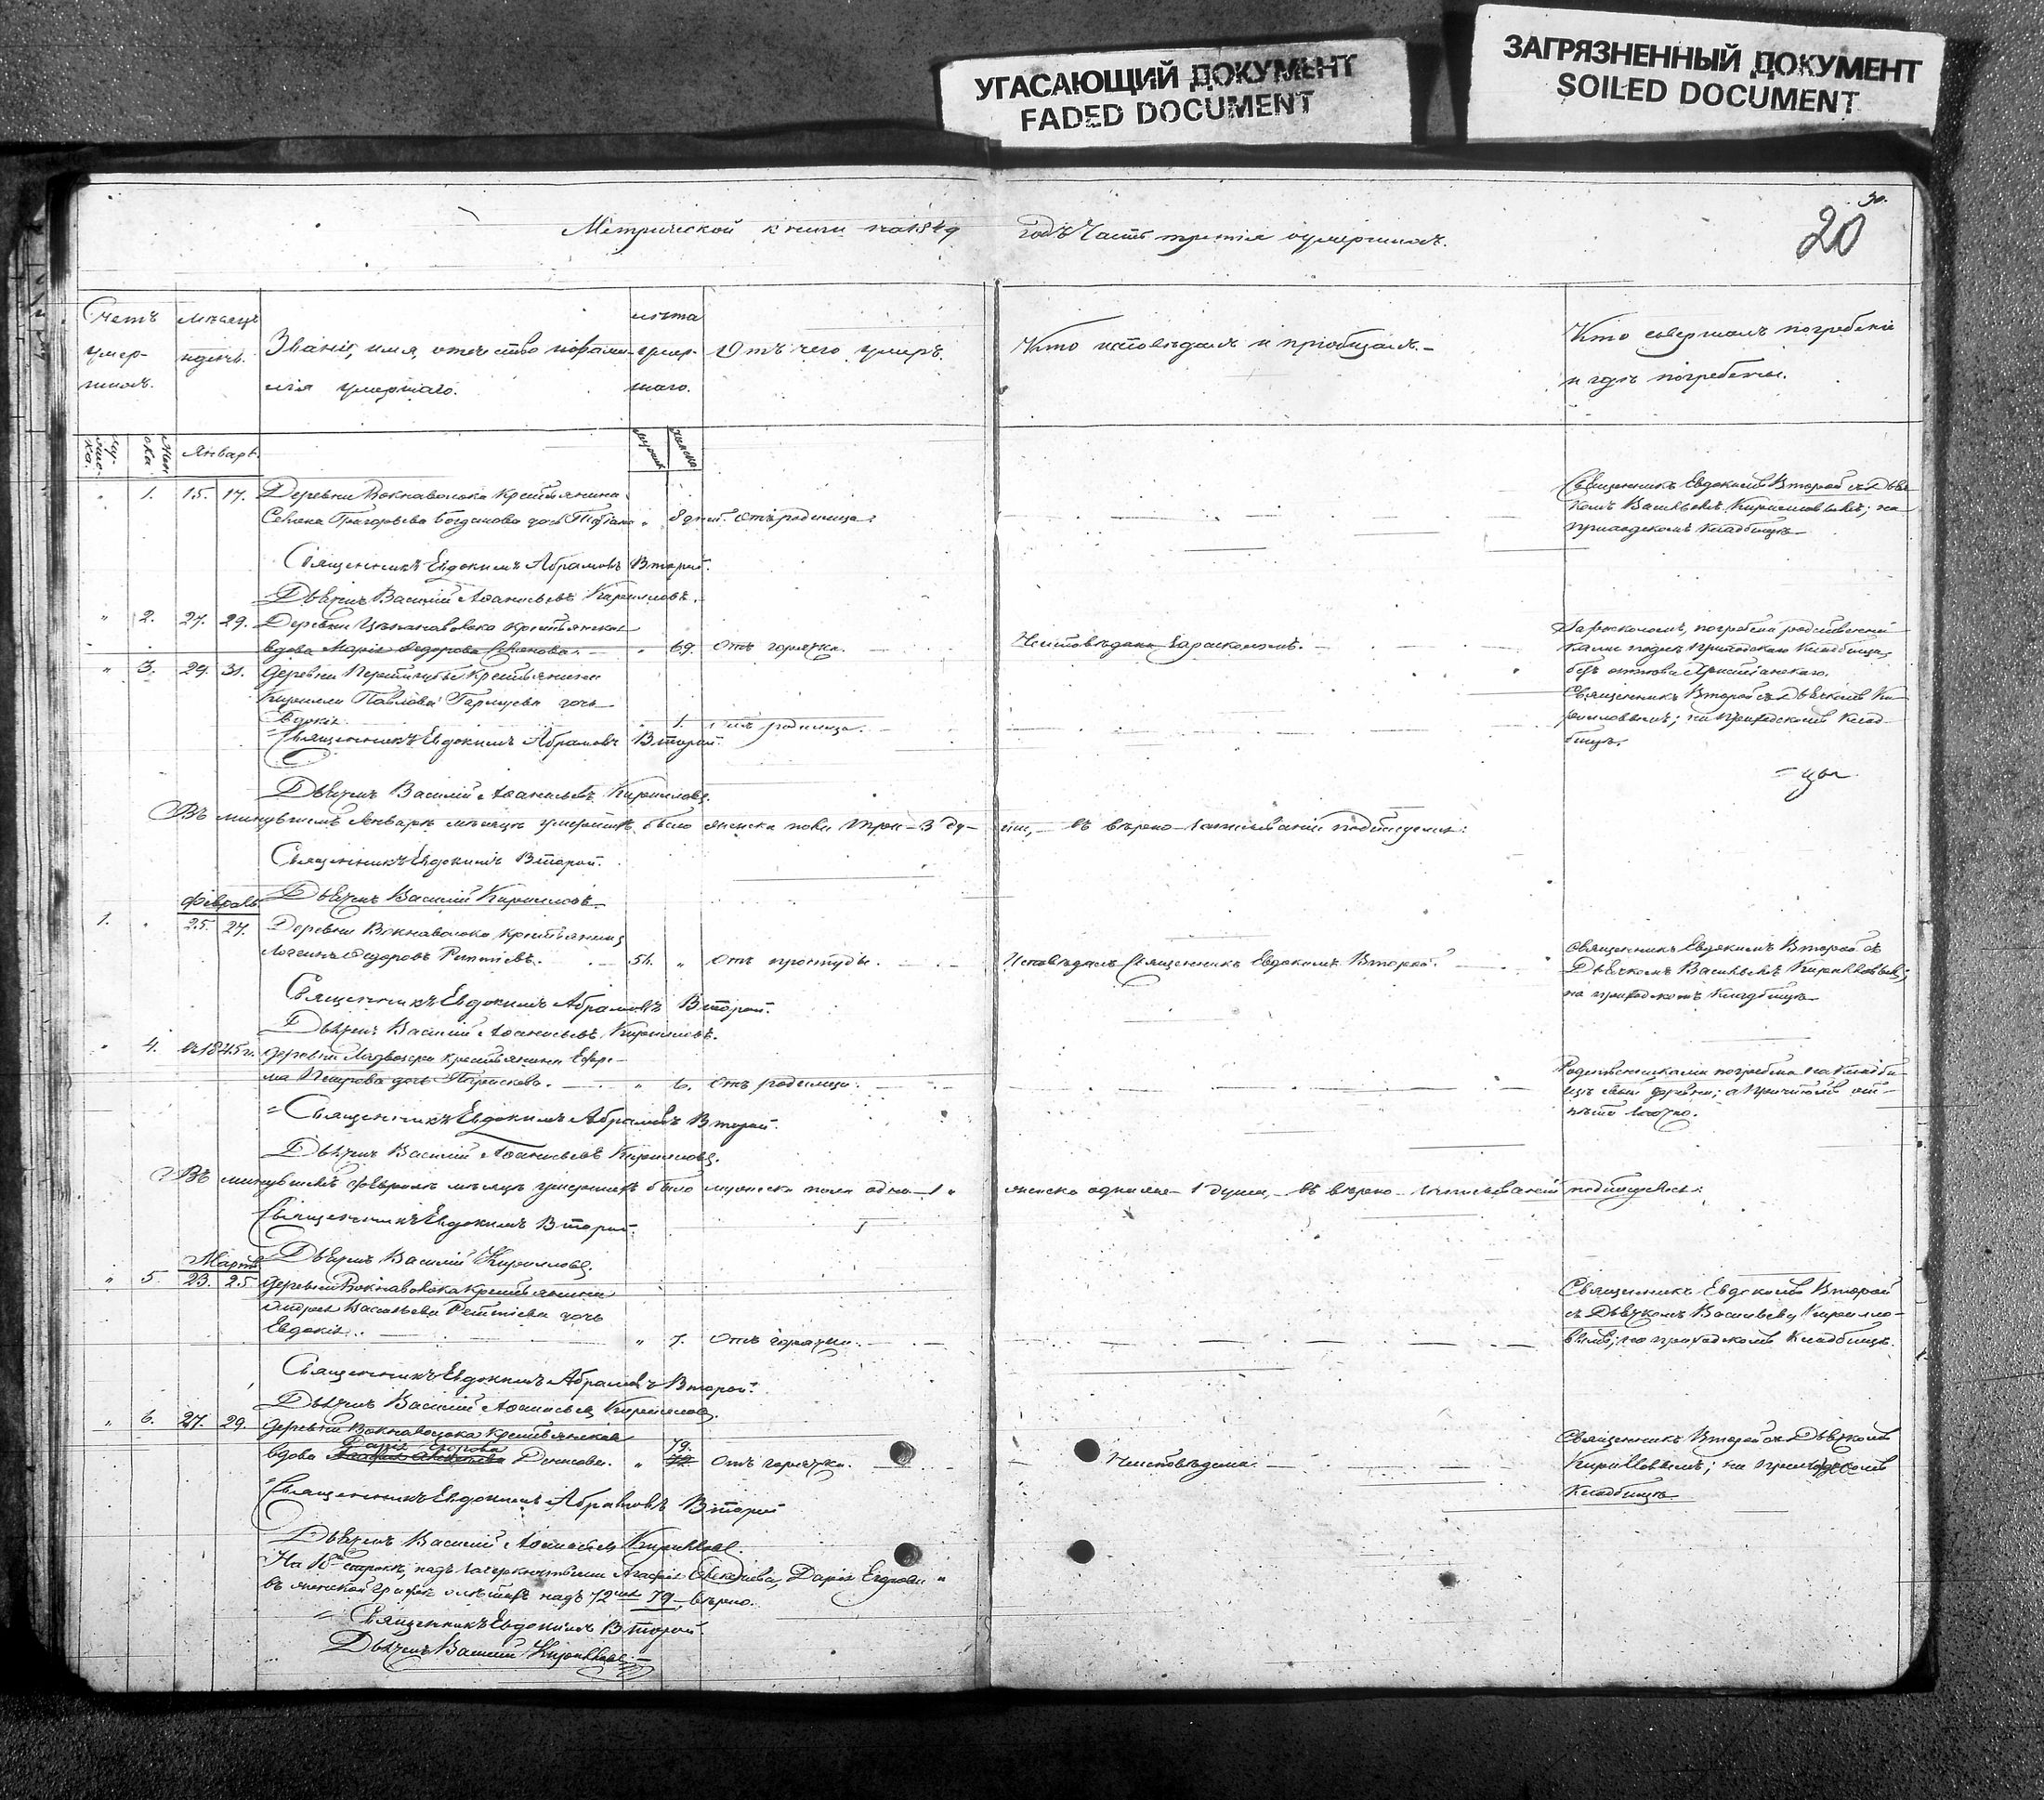 УГАСАЮЩИЙ ДОКУМЕНТ
FADED DOCUMENT
ЗАГРЯЗНЕННЫЙ ДОКУМЕНТ
SOILED DOCUMENT
20
Метрической книги на 1849 годъ Часть третія о умершихъ.
Счетъ умер-шихъ.
Мѣсяцъ и день.
Званіе, имя, отечество и фами-лія умершаго.
лѣта умер-шаго.
Отъ чего умеръ.
Кто исповѣдалъ и пріобщалъ.
Кто совершалъ погребеніе и гдѣ погребены.
Январь.
1. 15. 17. Деревни Вокнаволока крестьянина
Семена Григорьева Богданова дочь 8 дней. Отъ родимца.
Священникъ Евдокимъ Второй съ Дьяч-
комъ Васильемъ Кирилловымъ; на
приходскомъ кладбищѣ
Священникъ Евдокимъ Абрамовъ Второй.
Дьячекъ Василій Аѳанасьевъ Кирилловъ.
2. 27. 29. Деревни крестьянская
вдова Марія Ѳедорова 69. Отъ горячки. Неисповѣдана за расколомъ.
За расколомъ, погребена родственни-
ками подлѣ приходскаго кладбища,
безъ отпѣва Христіанскаго.
3. 29. 31. Деревни крестьянина
Кирилла Павлова дочь
Евдокія 1. Отъ родимца.
Священникъ Второй съ Дьячкомъ Ки-
рилловымъ; на приходскомъ клад-
бищѣ.
Священникъ Евдокимъ Абрамовъ Второй.
Дьячекъ Василій Аѳанасьевъ Кирилловъ.
Въ минувшемъ Январѣ мѣсяцѣ умершихъ было женска пола три - 3 ду- ши, въ вѣрно записываніи подписуемся:
Священникъ Евдокимъ Второй.
Дьячекъ Василій Кирилловъ
Февраль
1. 25. 27. Деревни Вокнаволока крестьянинъ
Ѳедоровъ 54. Отъ простуды. Исповѣдалъ Священникъ Евдокимъ Второй.
Священникъ Евдокимъ Второй съ
Дьячкомъ Васильемъ Кирилловымъ;
на приходскомъ кладбищѣ
Священникъ Евдокимъ Абрамовъ Второй.
Дьячекъ Василій Аѳанасьевъ Кирилловъ.
4. 1845 г. Деревни крестьянина Ефре-
ма Петрова дочь 6. Отъ родимца.
Родственниками погребена на кладби-
щѣ своей деревни; а причтомъ от-
пѣта заочно.
Священникъ Евдокимъ Абрамовъ Второй.
Дьячекъ Василій Аѳанасьевъ Кирилловъ.
Въ минувшемъ Февралѣ мѣсяцѣ умершихъ было мужеска пола одна - 1 женска одна - 1 душа, въ вѣрно записываніи подписуемся:
Священникъ Евдокимъ Второй.
Дьячекъ Василій Кирилловъ.
Мартъ
5. 23. 25. Деревни Вокнаволока крестьянина
Андрея Васильева дочь
Евдокія. 7. Отъ горячки.
Священникъ Евдокимъ Второй
съ Дьячкомъ Васильемъ Кирилло-
вымъ; на приходскомъ кладбищѣ.
Священникъ Евдокимъ Абрамовъ Второй.
Дьячекъ Василій Аѳанасьевъ Кирилловъ.
6. 27. 29. Деревни Вокнаволока крестьянская
Дарія Егорова 79.
вдова 72 Отъ горячки. Неисповѣдана.
Священникъ Второй съ Дьячкомъ
Кирилловымъ; на приходскомъ
кладбищѣ
Священникъ Евдокимъ Абрамовъ Второй
Дьячекъ Василій Аѳанасьевъ Кирилловъ.
На 18й строкѣ, надъ зачеркнутыми Агафья Алексѣева, Дарія Егорова
въ женской графѣ о лѣтахъ надъ 72мя 79, вѣрно.
Священникъ Евдокимъ Второй.
Дьячекъ Василій Кирилловъ.